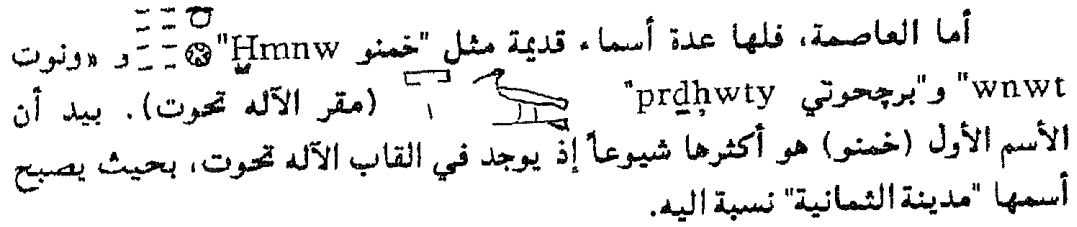 أما العاصمة، فلها عدة أسماء قديمة مثل "خمنو Ḫmnw" و «ونوت
wnwt" و"برجحوتي prḏḥwty" (مقر الآله تحوت). بيد أن
الأسم الأول (خمنو) هو أكثرها شيوعاً إذ يوجد في القاب الآله تحوت، بحيث يصبح
أسمها "مدينة الثمانية" نسبة اليه.